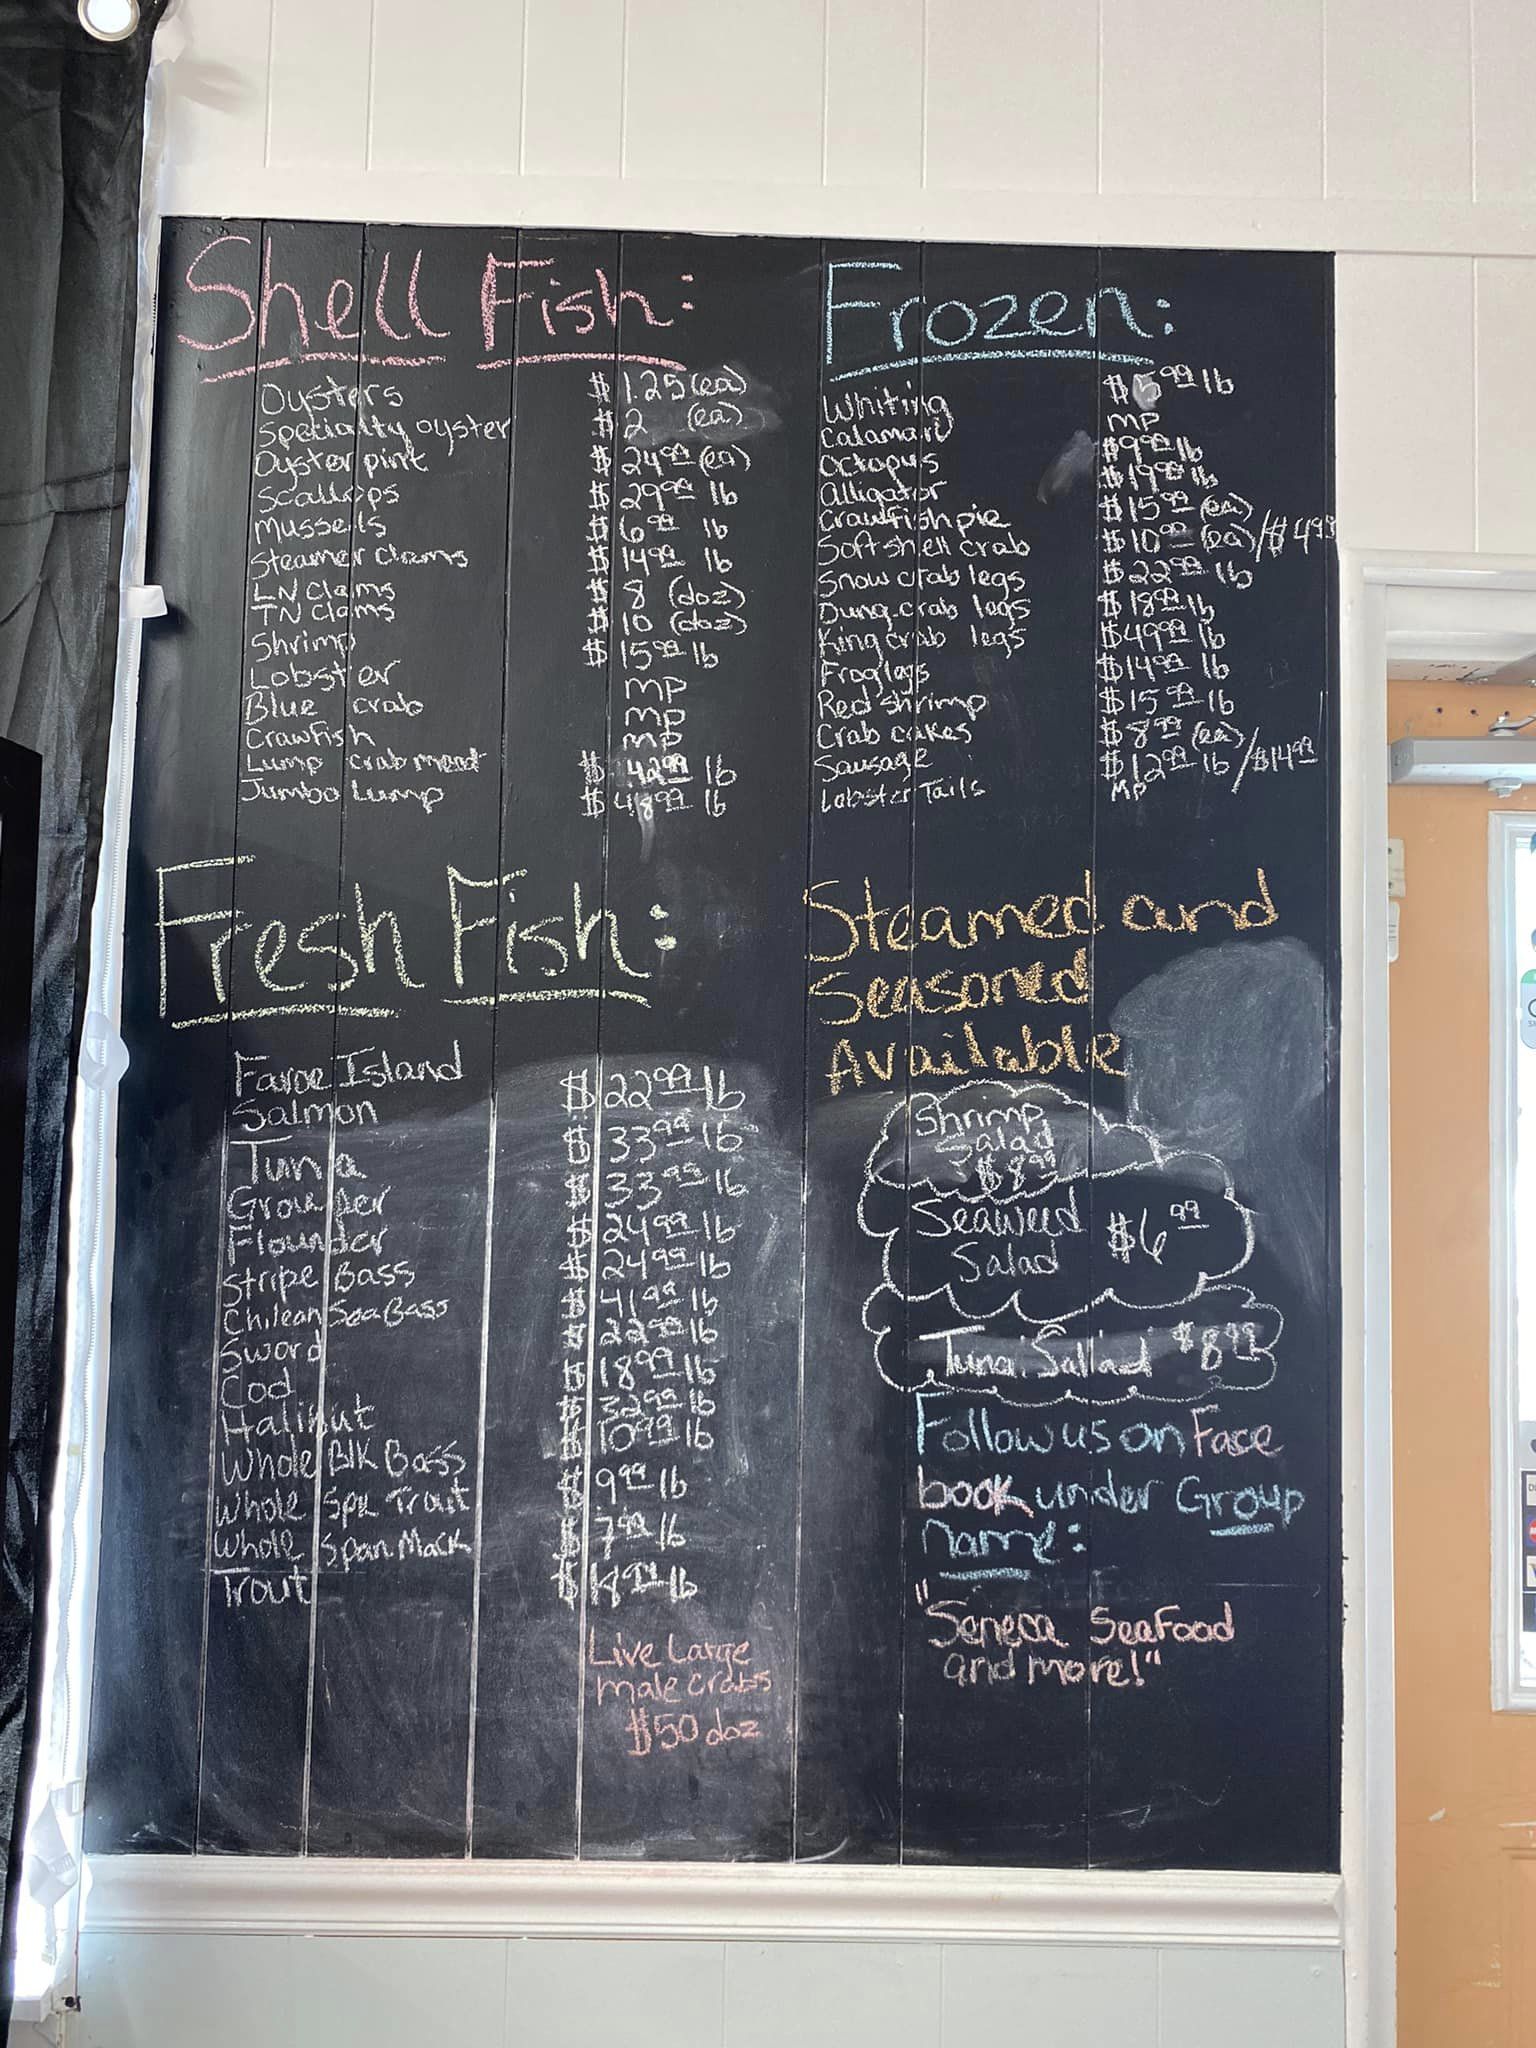 Shell Fish:
Oysters $1.25 (ea)
Specialty oyster $2 (ea)
Oyster pint $24.99 (ea)
Scallops $29.99 lb
Mussels $6.99 lb
Steamer clams $14.99 lb
LN Clams $8 (doz)
TN Clams $10 (doz)
Shrimp $15.99 lb
Lobster MP
Blue crab MP
Crawfish MP
Lump crab meat $42.99 lb
Jumbo Lump $48.99 lb
Fresh Fish:
Faroe Island
Salmon $22.99 lb
Tuna $33.99 lb
Grouper $33.99 lb
Flounder $24.99 lb
Stripe Bass $24.99 lb
Chilean Sea Bass $41.99 lb
Sword $22.99 lb
Cod $18.99 lb
Halibut $32.99 lb
Whole Blk Bass $10.99 lb
Whole Spk Trout $9.99 lb
Whole Span Mack $7.99 lb
Trout $18.99 lb
Live Large
male crabs
$50 doz
Frozen:
Whiting $5.99 lb
Calamari MP
Octopus $9.99 lb
Alligator $19.99 lb
Crawfish pie $15.99 (ea)
Soft shell crab $10.99 (ea)/$49.99
Snow crab legs $22.99 lb
Dung. crab legs $18.99 lb
King crab legs $49.99 lb
Frog legs $14.99 lb
Red shrimp $15.99 lb
Crab cakes $8.99 (ea)
Sausage $12.99 lb/$14.99
Lobster Tails MP
Steamed and
Seasoned
Available
Shrimp
Salad
$8.99
Seaweed
Salad $6.99
Tuna Sallad $8.99
Follow us on Face
book under Group
name:
"Seneca SeaFood
and more!"